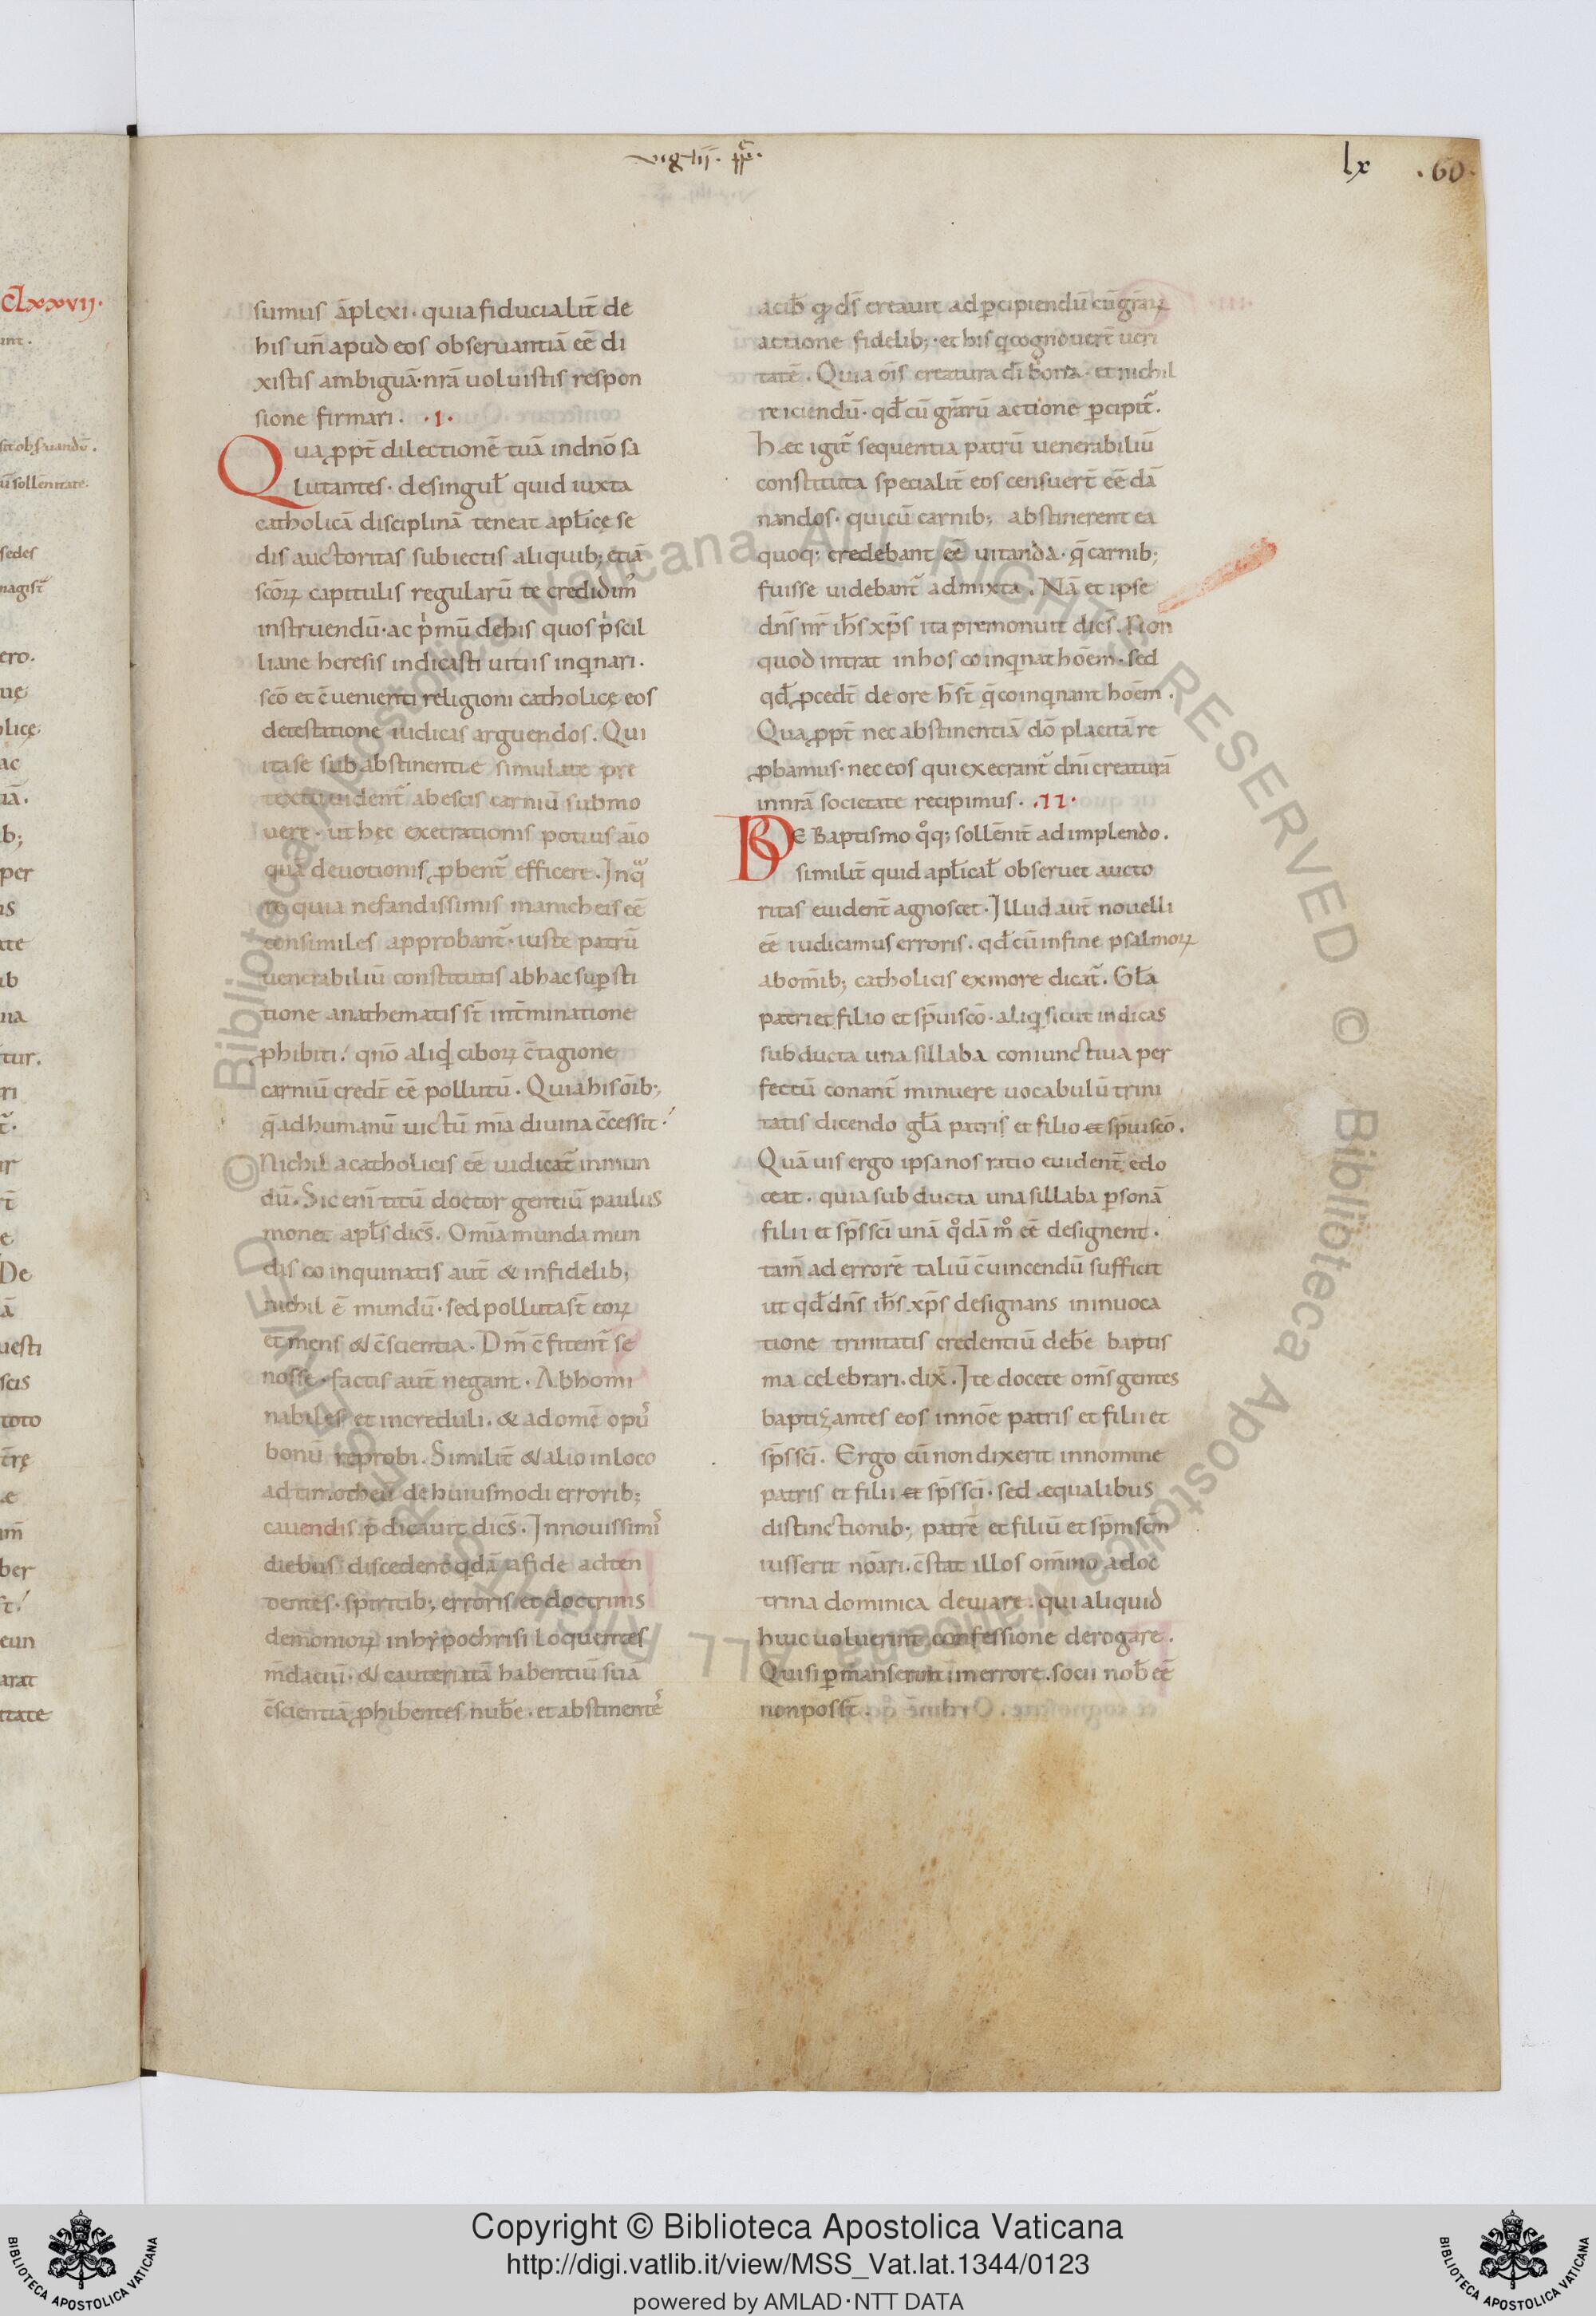 vigilii. pp̄.
lx .60.
c̄lxxvij.
sumus āplexi· quia fiducialit̄ de
his un̄ apud eos obseruantiā eē di
xistis ambiguā· nrā uoluistis respon
sione firmari. ·I·
Qua ꝓpt̄ dilectionē tuā in dn̄o sa
lutantes· de singul̄ quid iuxta
catholicā disciplinā teneat apl̄icę se
dis auctoritas subiectis aliquib; etiā
sc̄oꝝ capitulis regularū te credidim᷒
instruendū· ac p̍mū de his quos p̍scil
liane heresis indicasti uitiis inq̍nari.
sc̄o et c̄uenienti religioni catholicę eos
detestatione iudicas arguendos. Qui
ita se sub abstinentie simulate pre
textu uident᷑ ab escis carniū submo
uere· ut hec execrationis potius aīo
quā deuotionis ꝓbent᷑ efficere. In q̄
re quia nefandissimis manicheis eē
consimiles approbant᷑· iuste patrū
uenerabiliū constitutis ab hac suꝑsti
tione anathematis st̄ int̄minatione
ꝓhibiti! qn̄o aliq̍d ciboꝝ c̄tagione
carniū credt̄ eē pollutū. Quia his oīb;
q̄ ad humanū uictū mīa diuina c̄cessit!
Nichil a catholicis eē iudicat᷑ inmun
dū. Sic enī titū doctor gentiū paulus
monet apl̄s dicēs. Omīa munda mun
dis coinquinatis aut̄ & infidelib;
nichil ē mundū· sed polluta st̄ eoꝝ
et mens & c̄scientia. Dm̄ c̄fitent᷑ se
nosse· factis aut̄ negant· Abhomi
nabiles et increduli. & ad omē op᷒
bonū reprobi. Similit̄ & alio in loco
ad timotheū de huiusmodi errorib;
cauendis p̄dicauit dicēs. In nouissimis
diebus discedent q̍dā a fide adten
dentes· spiritib; erroris et doctrinis
demonioꝝ in hypochrisi loquentes
m̄daciū· & cauteriatā habentiū suā
c̄scientiā ꝓhibentes nub̄e· et abstinente᷒
a cib̄ q̊s ds̄ creauit ad ꝑcipiendū cū gr̄aꝝ
actione fidelib;· et his q̍ cognouert̄ ueri
tatē. Quia oīs creatura dī bona· et nichil
reiciendū· qd̄ cū gr̄arū actione ꝑcipit᷑.
Hæc igit᷑ sequentia patrū uenerabiliū
constituta specialit̄ eos censuert̄ eē dā
nandos· qui cū carnib; abstinerent ea
quoq; credebant eē uitanda· q̄ carnib;
fuisse uidebant᷑ admixta. Nā et ipse
dn̄s nr̄ ih̄s xp̄s ita premonuit dicēs. Non
quod intrat in hos coinq̍nat hoēm· sed
qd̄ ꝓcedt̄ de ore h̄ st̄ q̄ coinq̍nant hoēm.
Qua ꝓpt̄ nec abstinentiā dō placitā re
ꝓbamus· nec eos qui execrant᷑ dn̄i creaturā
in nrā societate recipimus. .II·
De Baptismo q̊q; sollēnit̄ adimplendo.
similit̄ quid apl̄ical̄ obseruet aucto
ritas euident̄ agnoscet· Illud aut̄ nouelli
eē iudicamus erroris. qd̄ cū in fine psalmoꝝ
ab om̄ib; catholicis ex more dicat᷑. Gl̄a
patri et filio et sp̄ui sc̄o· aliq̍ sicut indicas
subducta una sillaba coniunctiua per
fectū conant᷑ minuere uocabulū trini
tatis dicendo gl̄a patri et filio et sp̄ui sc̄o.
Quāuis ergo ipsa nos ratio euident̄ edo
ceat. quia subducta una sillaba ꝑsonā
filii et sp̄s sc̄i unā q̊dā m̊ eē designent.
tam̄ ad errorē taliū c̄uincendū sufficit
ut qd̄ dn̄s ih̄s xp̄s designans in inuoca
tione trinitatis credentiū deb̄e baptis
ma celebrari. dix̄. Ite docete om̄s gentes
baptizantes eos in noē patris et filii et
sp̄s sc̄i. Ergo cū non dixerit in nomine
patris et filii et sp̄s sc̄i· sed æqualibus
distinctionib; patrē et filiū et sp̄m sc̄m
iusserit noārī. c̄stat illos om̄ino a doc
trina dominica deuiare. qui aliquid
huic uoluerint confessione derogare.
Qui si ꝑmanserunt in errore. socii nob̄ eē
non posst̄.
Copyright © Biblioteca Apostolica Vaticana
http://digi.vatlib.it/view/MSS_Vat.lat.1344/0123
powered by AMLAD·NTT DATA